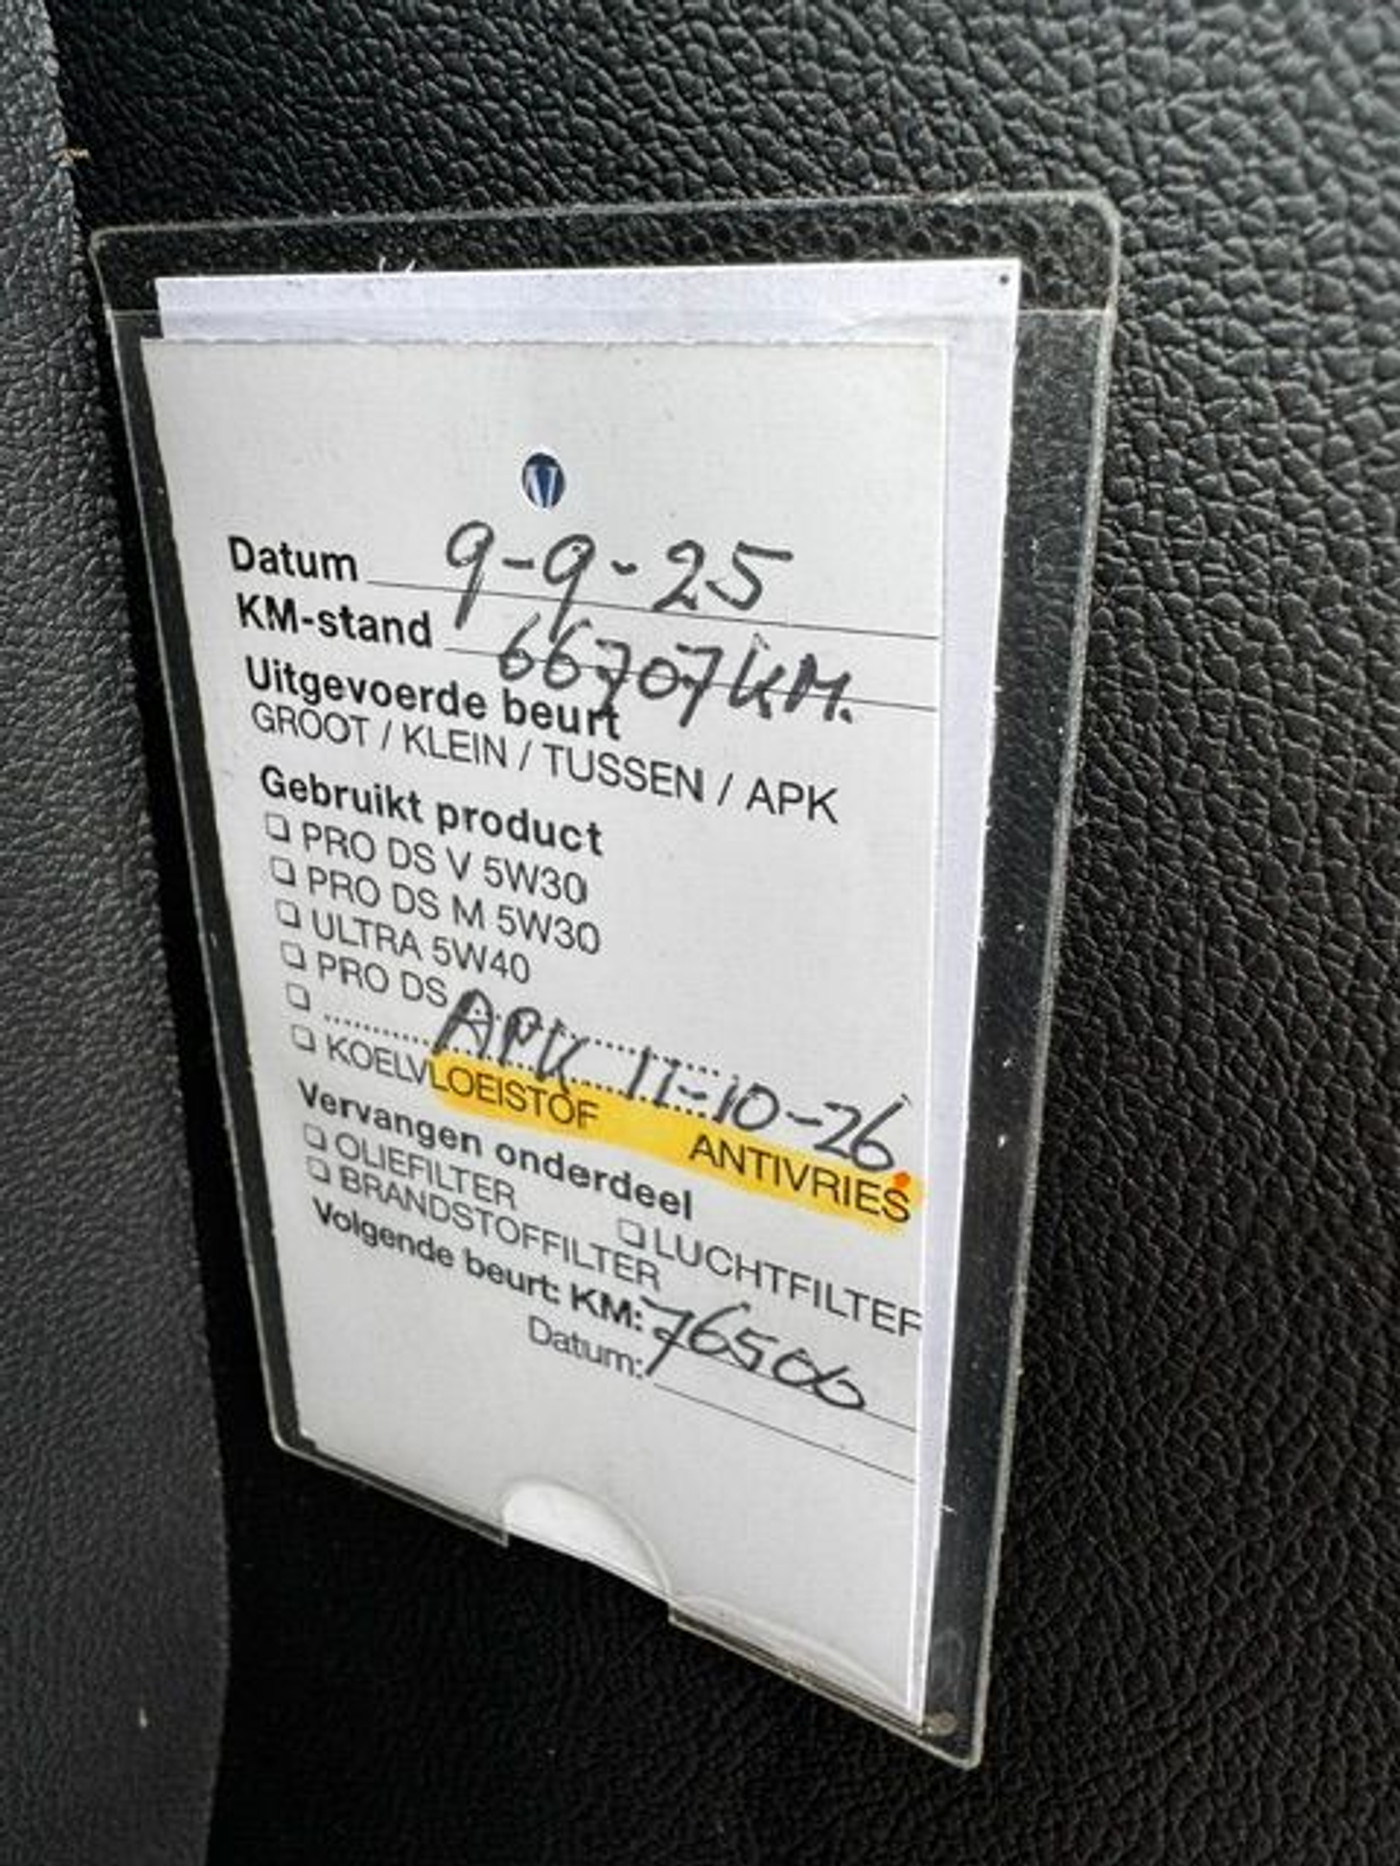 Datum 9-9-25
KM-stand 66707 KM.
Uitgevoerde beurt
GROOT / KLEIN / TUSSEN / APK
Gebruikt product
❏ PRO DS V 5W30
❏ PRO DS M 5W30
❏ ULTRA 5W40
❏ PRO DS
❏ APK 11-10-26
❏ KOELVLOEISTOF ANTIVRIES
Vervangen onderdeel
❏ OLIEFILTER ❏ LUCHTFILTER
❏ BRANDSTOFFILTER
Volgende beurt: KM: 76500
Datum: